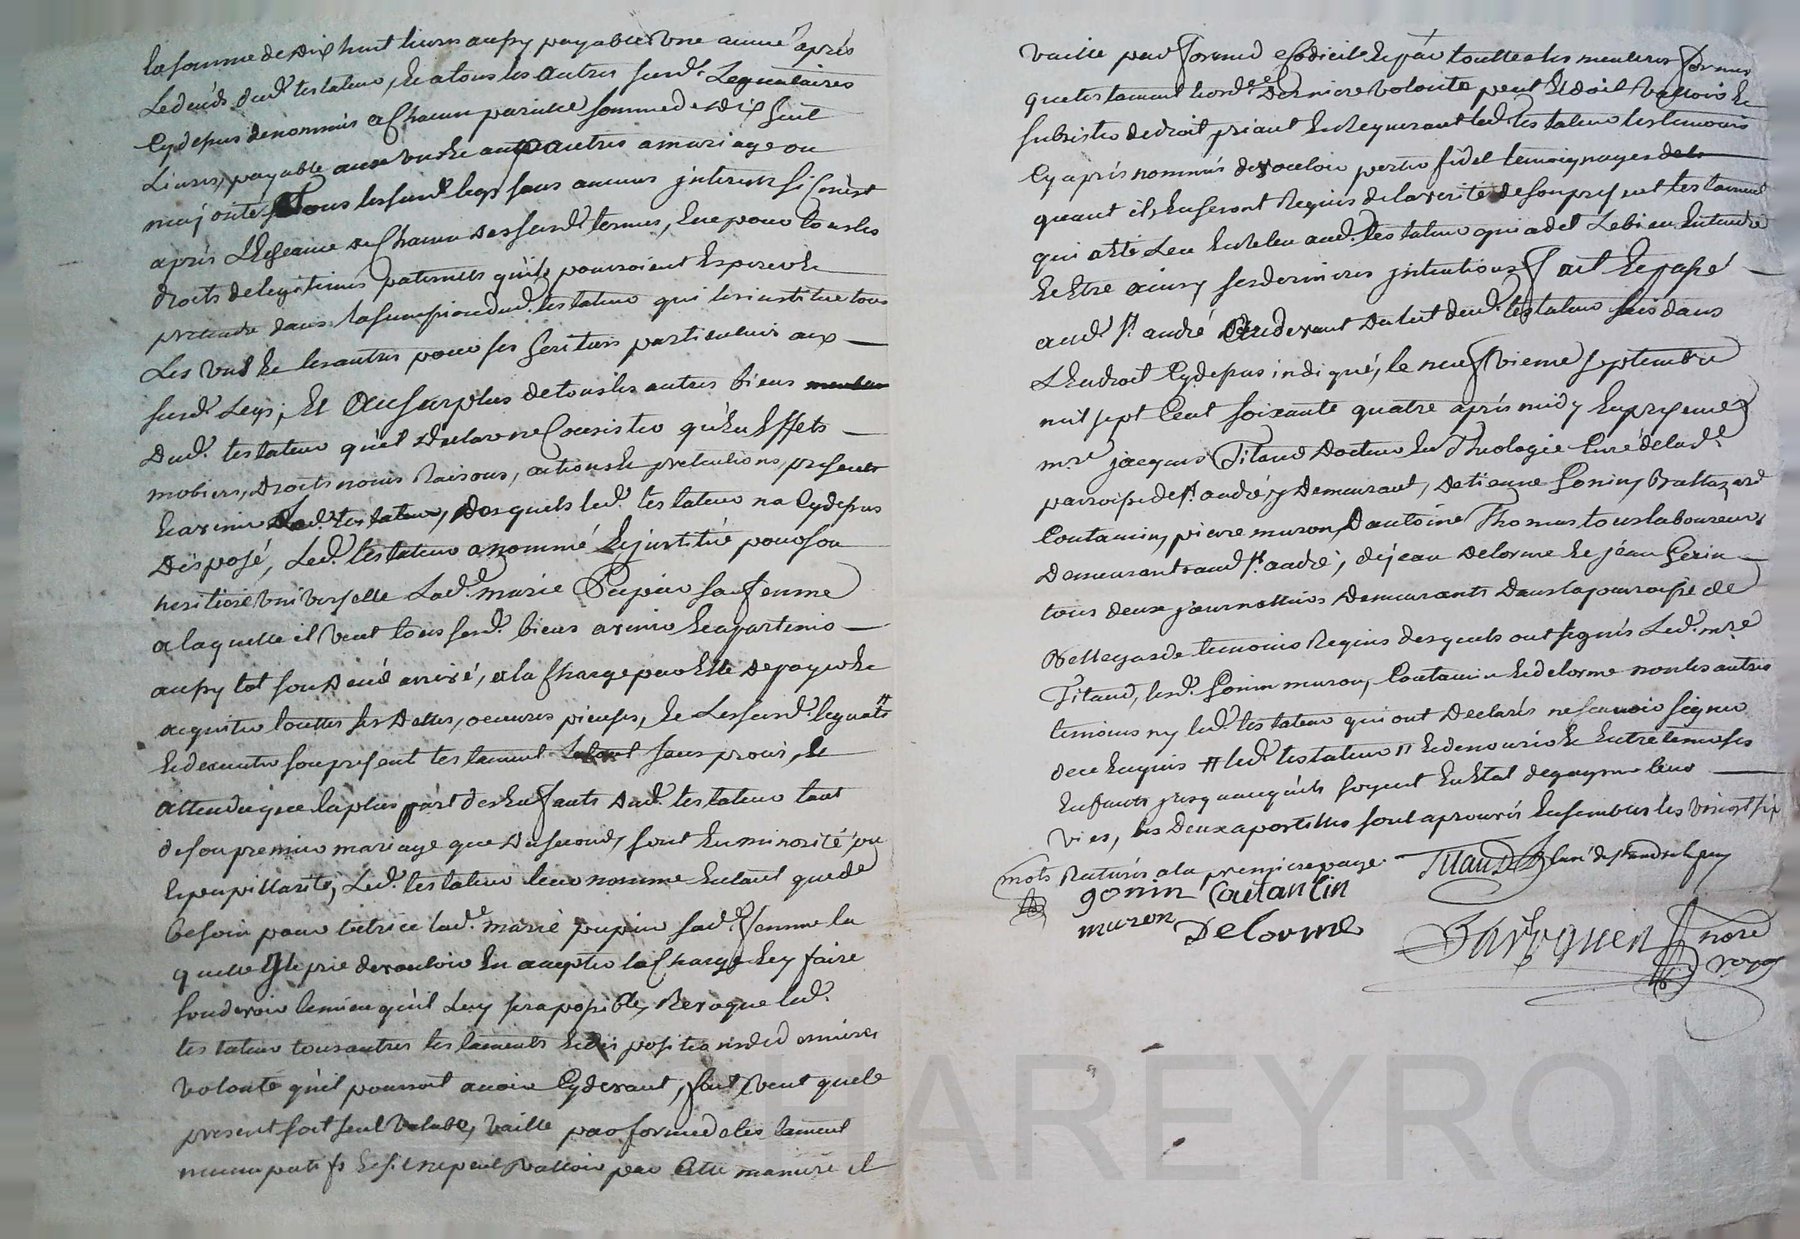 la somme de dix huit livres aussy payables une année après
le décès dud. testateur, et a tous les autres susd. legataires
cydepus denommés a chacun pareille somme de dix huit
livres, payable aux uns et aux autres a mariage ou
majorité tous les susd. legs sans aucuns interets si ce n'est
après l'escance de chacun des susd. termes, et ce pour tous les
droits de legitimes paternels qu'ils pourroient esperer et
pretendre dans la dud. testateur qui les institue tous
les uns et les autres pour ses heritiers particuliers aux
susd. legs; et au surplus de tous les autres biens
dud. testateur qu'il declare ne consister qu'en effets
mobiers, droits noms raisons, actions et pretentions, presents
et avenir dud. testateur, desquels led. testateur na cydepus
disposé, led. testateur a nommé et institué pour son
heritiere universelle lad. marie Pupier sa femme
a laquelle il veut tous sesd. biens avenir et apartenir
aussy tot son decé arrivé, a la charge par elle de payer et
acquiter touttes ses dettes, oeuvres pieuses, et les susd. legs
et dexecuter son present testament sans procés, et
attendu que la plus part des enfants dud. testateur tant
de son premier mariage que du second, sont en minorité ou
et pupillarité, led. testateur leur nomme entant que de
besoin pour tutrice lad. marie pupier sad. femme la
quelle il prie de vouloir en accepter la charge et y faire
son devoir le mieux qu'il luy sera possible, Revoque led.
testateur tous autres testaments et dispositions de derniere
volonté qu'il pourroit avoir cy devant fait, veut que le
present soit seul valable, vaille par forme de testament
nuncupatif et s'il ne peut valloir par cette maniere il
vaille par forme de codicile et par touttes les meilleures formes
que testament et ord.ce de derniere volonté peut et doit valloir et
subsister de droit priant et requerant led. testateur les temoins
cy aprés nommés de vouloir porter fidel temoignages
quant ils en seront requis de la verité de son present testament
qui a été leu et releu aud. testateur qui a dit le bien entendre
et etre ainsy ses dernieres intentions fait et passé
aud. St. andré au devant du lit dud. testateur sis dans
l'endroit cydepus indiqué, le neufvieme septembre
mil sept cent soixante quatre aprés midy en presence
m.re jacques Titaud docteur en Theologie curé de lad.
parroisse de St. andré y demeurant, detienne Gonin, Baltazard
Contamin, pierre muron, d'antoine Thomas tous laboureurs
demeurants aud. St. andré; de jean delorme et jean Gerin
tous deux journalliers demeurants dans la parroisse de
Bellegarde temoins requis desquels ont signés led. m.re
Titaud, lesd. Gonin muron, Contamin et delorme non les autres
temoins ny led. testateur qui ont declarés ne scavoir signer
de ce enquis # led. testateur # et de nourir et entretenir ses
enfants jusqu'a ce qu'ils soyent en etat de gagner leur
vies, les deux apostilles sont aprouvés ensembles les vingt six
mots raturés a la premiere page. Titaud curé de St andre le puy
gonin Coutantin
muron Delorme
nore
royal
HAREYRON